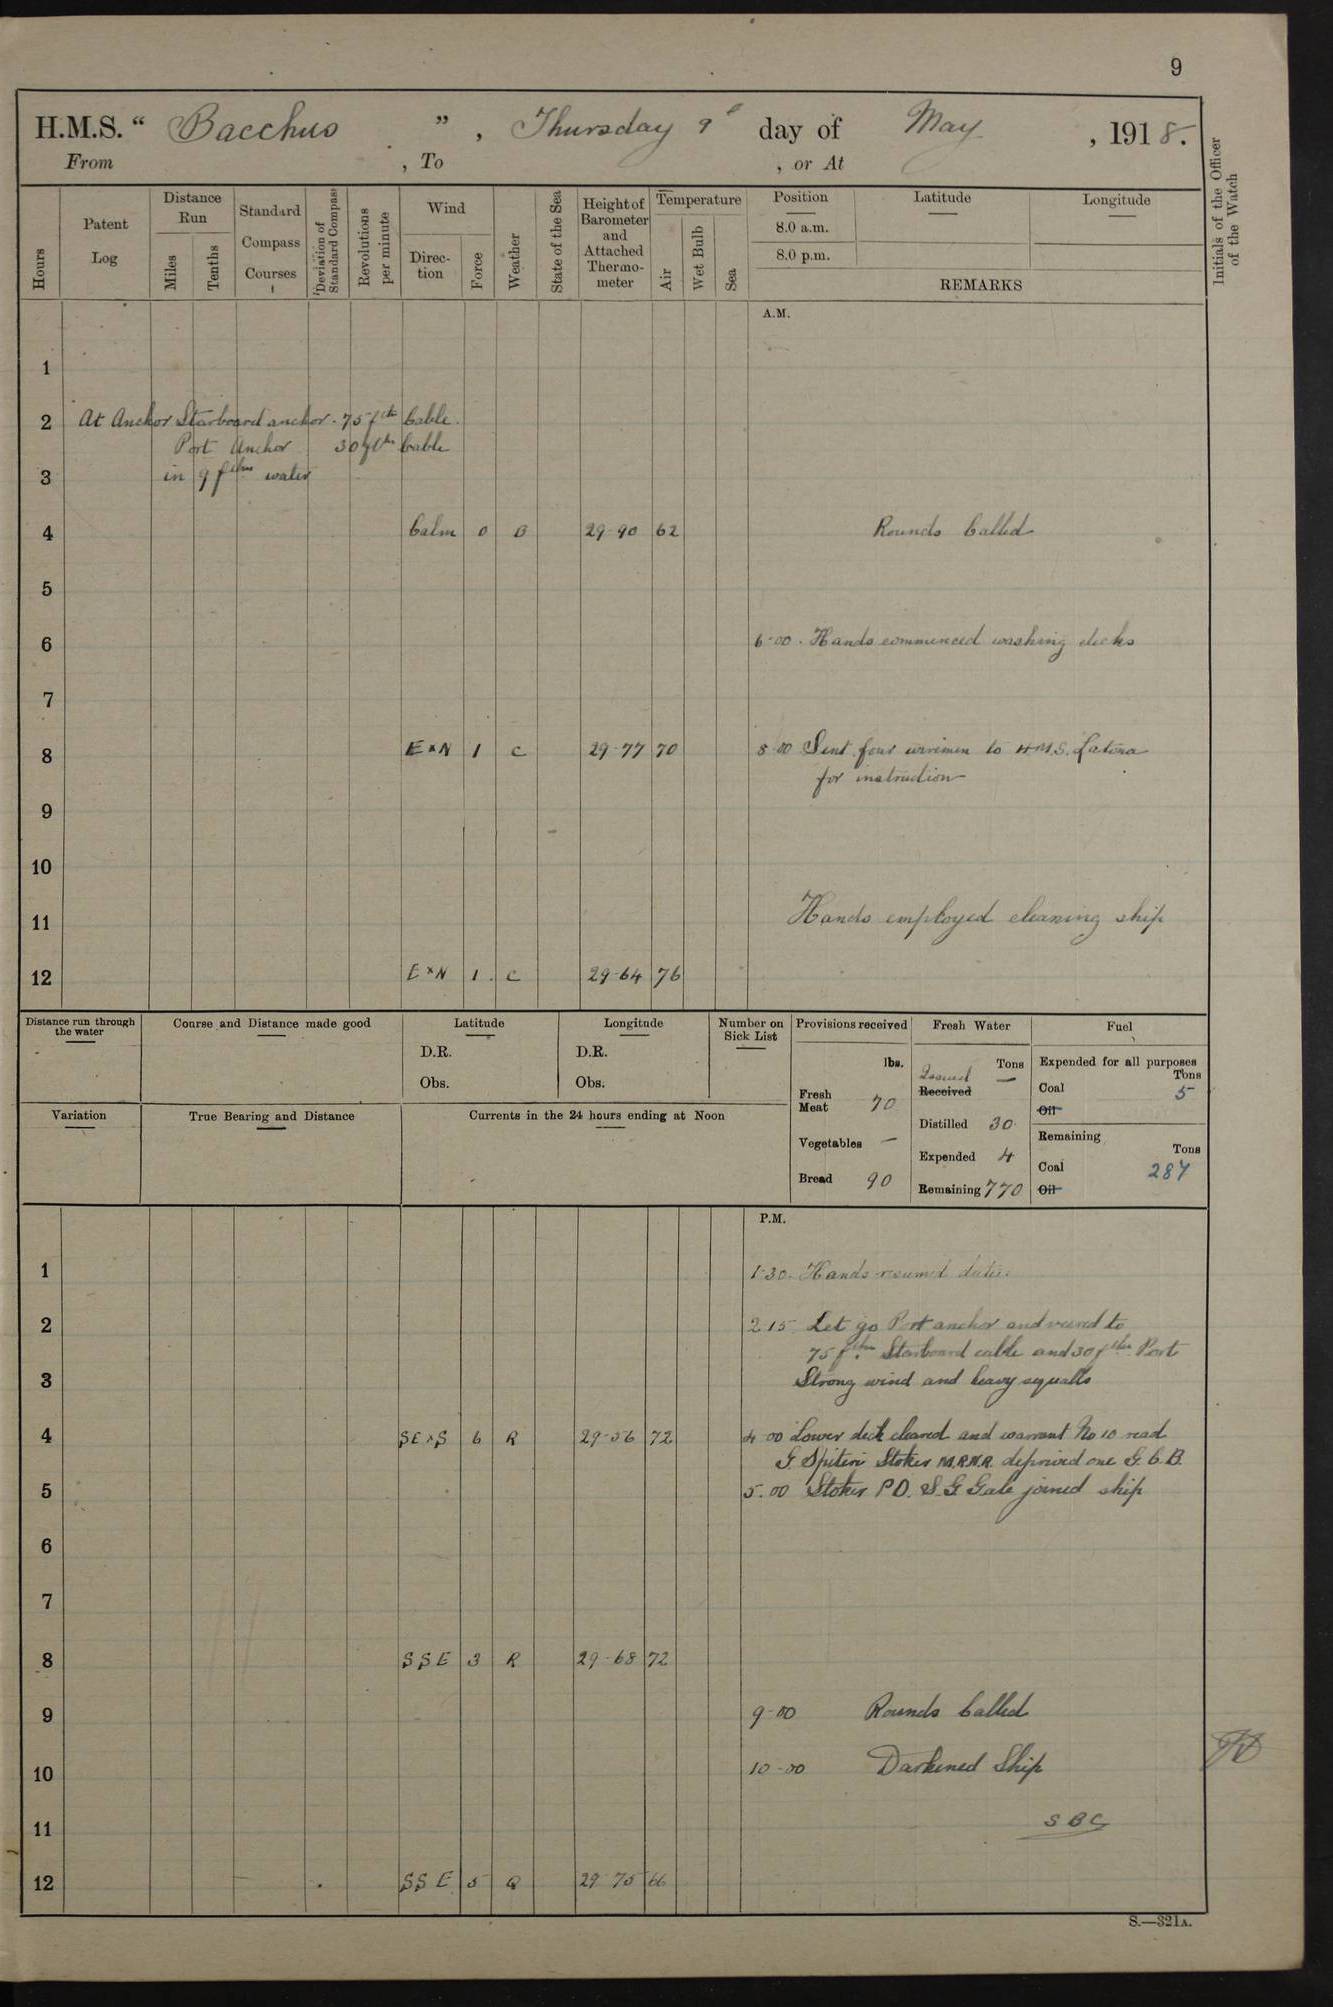 9
H.M.S. “ Bacchus ” , Thursday 9th day of May , 1918.
From , To , or At
Hours
Patent Log
Distance Run
Miles
Tenths
Standard Compass Courses
Deviation of Standard Compass
Revolutions per minute
Wind
Direction
Force
Weather
State of the Sea
Height of Barometer and Attached Thermometer
Temperature
Air
Wet Bulb
Sea
Position
8.0 a.m.
8.0 p.m.
Latitude
Longitude
REMARKS
Initials of the Officer of the Watch
A.M.
1
2 At Anchor Starboard anchor. 75 fth Cable.
Port Anchor 30 fths Cable
3 in 9 fthms water
4 Calm 0 B 29-90 62 Rounds Called
5
6 6-00. Hands commenced washing decks
7
8 E×N 1 C 29-77 70 8-00 Sent four wiremen to H.M.S. Latona
for instruction
9
10
11 Hands employed cleaning ship
12 E×N 1. C 29-64 76
Distance run through the water
Course and Distance made good
Latitude
D.R.
Obs.
Longitude
D.R.
Obs.
Number on Sick List
Variation
True Bearing and Distance
Currents in the 24 hours ending at Noon
Provisions received
lbs.
Fresh Meat 70
Vegetables —
Bread 90
Fresh Water
Tons
Issued —
Received
Distilled 30
Expended 4
Remaining 770
Fuel
Expended for all purposes
Tons
Coal 5
Oil
Remaining
Tons
Coal 287
Oil
P.M.
1 1-30. Hands resumed duties.
2 2 15 Let go Port anchor and veered to
75 fthm Starboard cable and 30 fthm Port
3 Strong wind and heavy squalls
4 SE×S 6 R 29-56 72 4 00 Lower deck cleared and warrant No 10 read
G. Spiteri Stoker M.R.N.R. deprived one G.C.B.
5 5.00 Stoker P.O. S.G Gale joined ship
6
7
8 SSE 3 R 29-68 72
9 9-00 Rounds Called
10 10-00 Darkened Ship
11 SBC
12 SSE 5 Q 29 75 66
S.—321A.